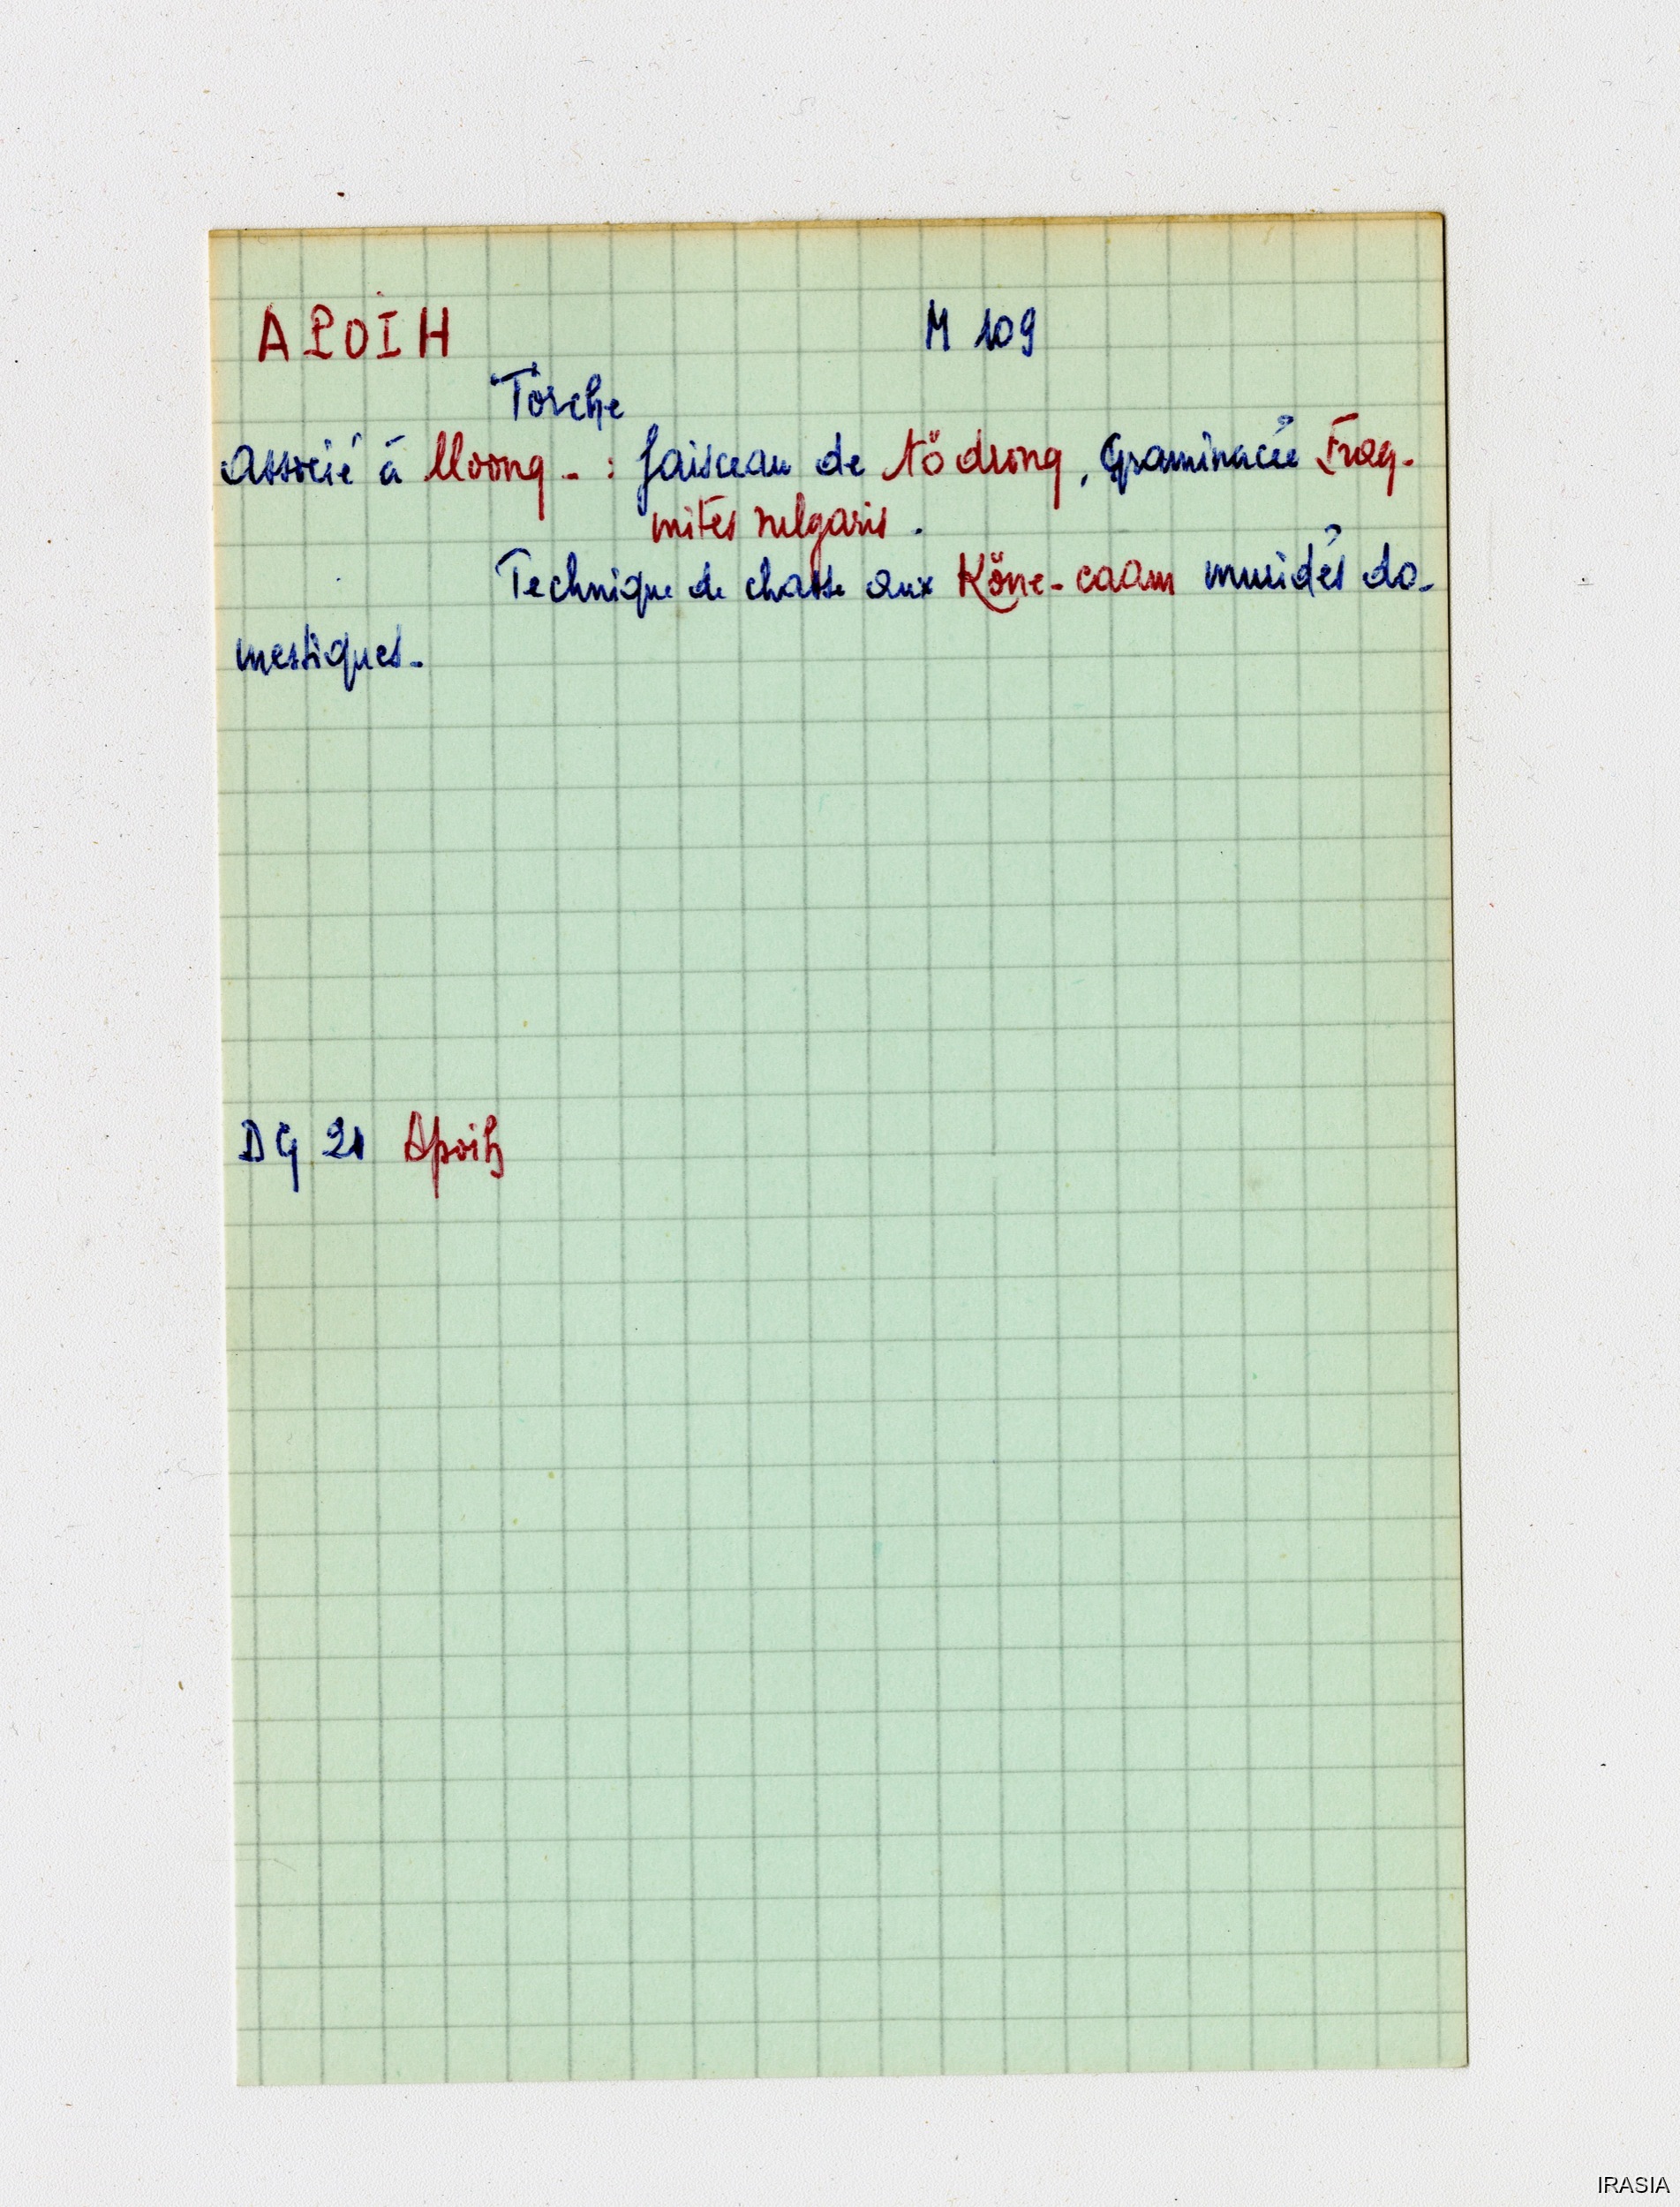 APOIH M 109
Torche
Associé à Moong - : faisceau de Nödrong, Graminacée Frag-
mites vulgaris.
Technique de chasse aux Köne-caam muridés do-
mestiques.
DG 21 Apoih
IRASIA